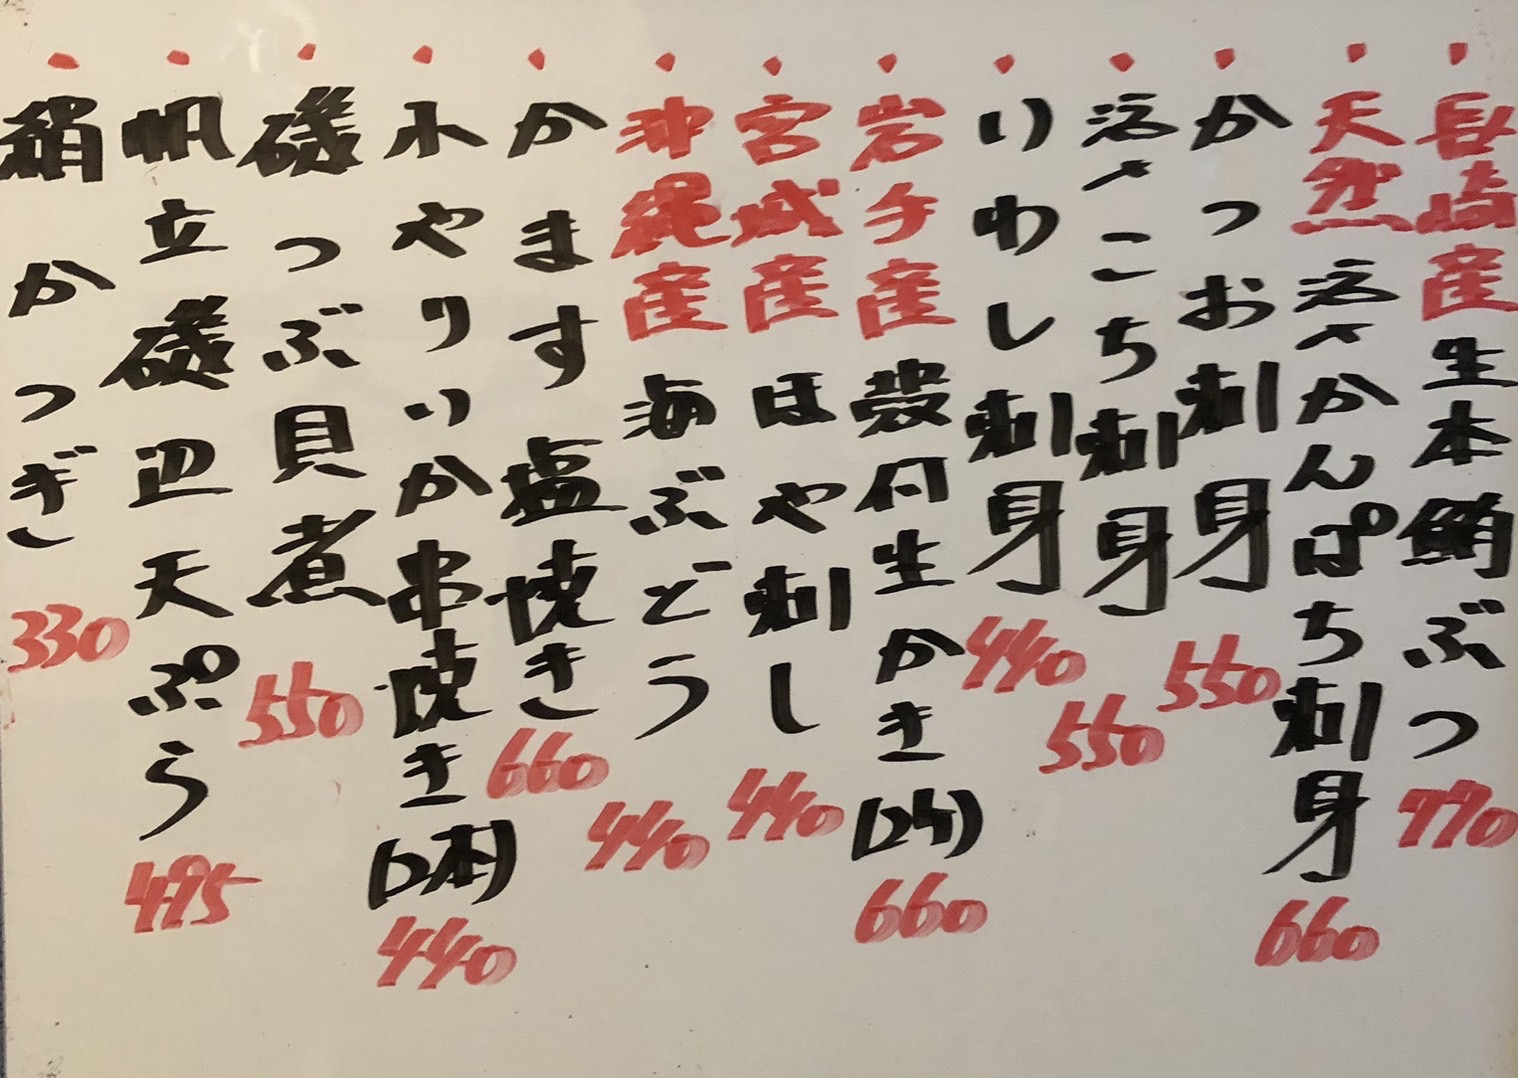 ・長崎産生本鮪ぶつ 770
・天然活〆かんぱち刺身 660
・かつお刺身 550
・活〆こち刺身 550
・いわし刺身 440
・岩手産殻付生かき(2ケ) 660
・宮城産ほや刺し 440
・沖縄産海ぶどう 440
・かます塩焼き 660
・小やりいか串焼き(2本) 440
・磯つぶ貝煮 550
・帆立磯辺天ぷら 495
・絹かつぎ 330